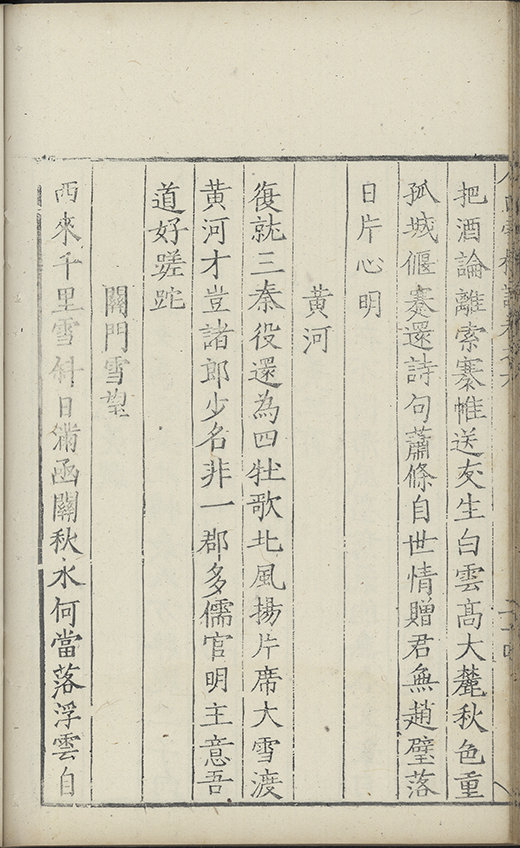 把酒論離索褰帷送友生白雲高大麓秋色重
孤城偃蹇還詩句蕭條自世情贈君無趙璧落
日片心明
黃河
復就三秦役還為四牡歌北風揚片席大雪渡
黃河才豈諸郎少名非一郡多儒官明主意吾
道好蹉跎
關門雪望
西來千里雪斜日滿函關秋水何當落浮雲自